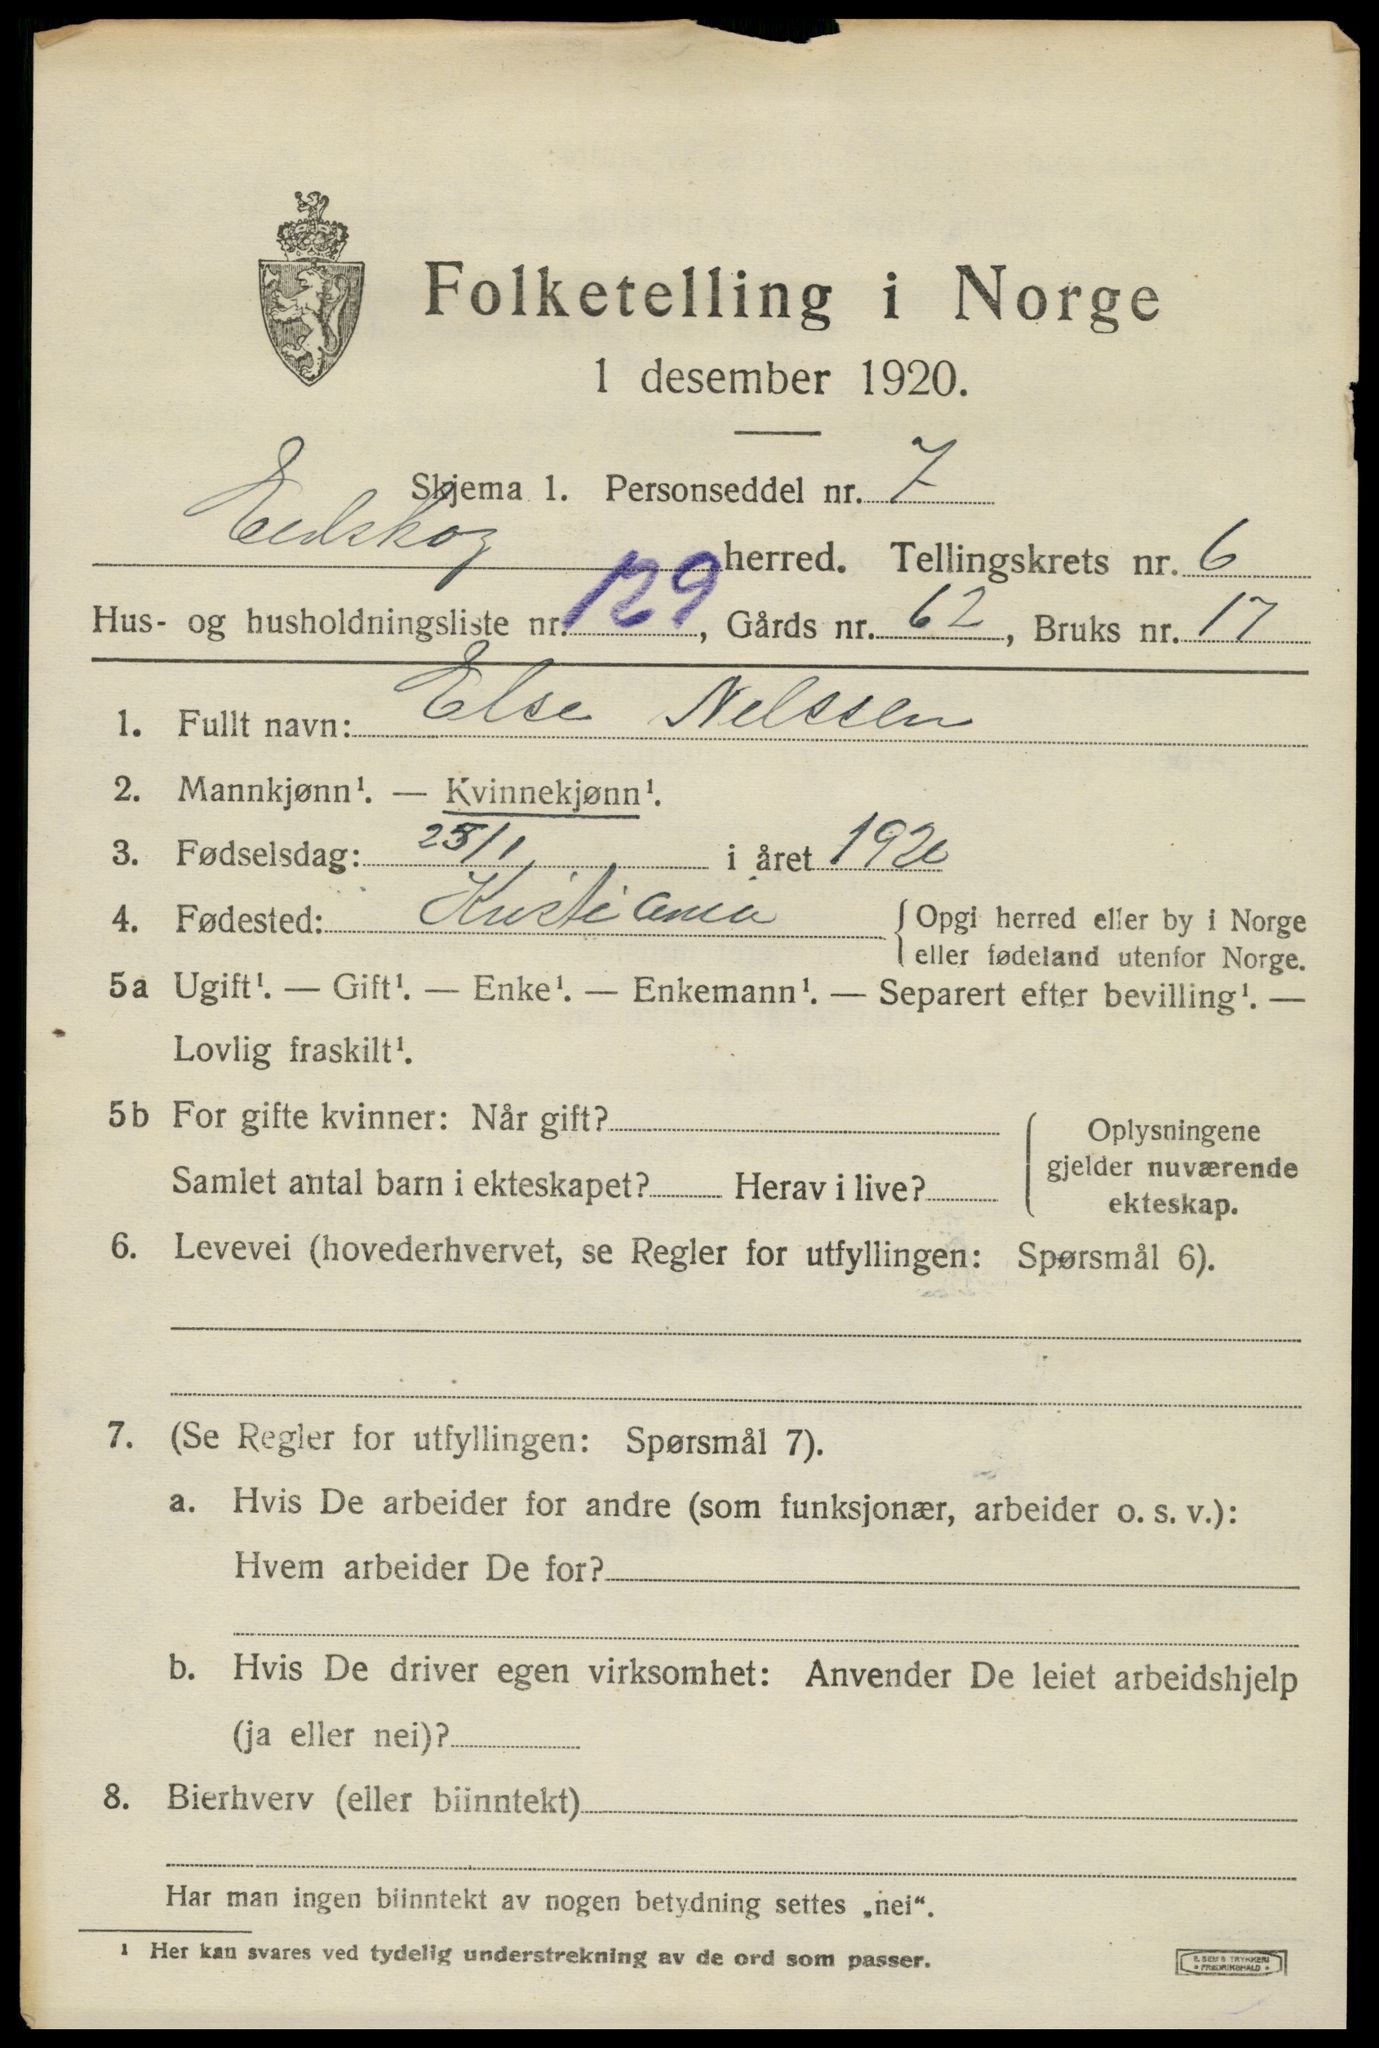 Folketelling i Norge
1 desember 1920.
Skjema 1. Personseddel nr. 7
Eidskog herred. Tellingskrets nr. 6
Hus- og husholdningsliste nr. 129, Gårds nr. 62, Bruks nr. 17
1. Fullt navn: Else Nelssen
2. Mannkjønn¹. — Kvinnekjønn¹.
3. Fødselsdag: 25/1 i året 1920
4. Fødested: Kristiania { Opgi herred eller by i Norge
eller fødeland utenfor Norge.
5a Ugift¹. — Gift¹. — Enke¹. — Enkemann¹. — Separert efter bevilling¹. —
Lovlig fraskilt¹.
5b For gifte kvinner: Når gift?
Samlet antal barn i ekteskapet? Herav i live?
Oplysningene
gjelder nuværende
ekteskap.
6. Levevei (hovederhvervet, se Regler for utfyllingen: Spørsmål 6).
7. (Se Regler for utfyllingen: Spørsmål 7).
a. Hvis De arbeider for andre (som funksjonær, arbeider o. s. v.):
Hvem arbeider De for?
b. Hvis De driver egen virksomhet: Anvender De leiet arbeidshjelp
(ja eller nei)?
8. Bierhverv (eller biinntekt)
Har man ingen biinntekt av nogen betydning settes „nei“.
¹ Her kan svares ved tydelig understrekning av de ord som passer.
E. SEM'S TRYKKERI
• FREDRIKSHALD •